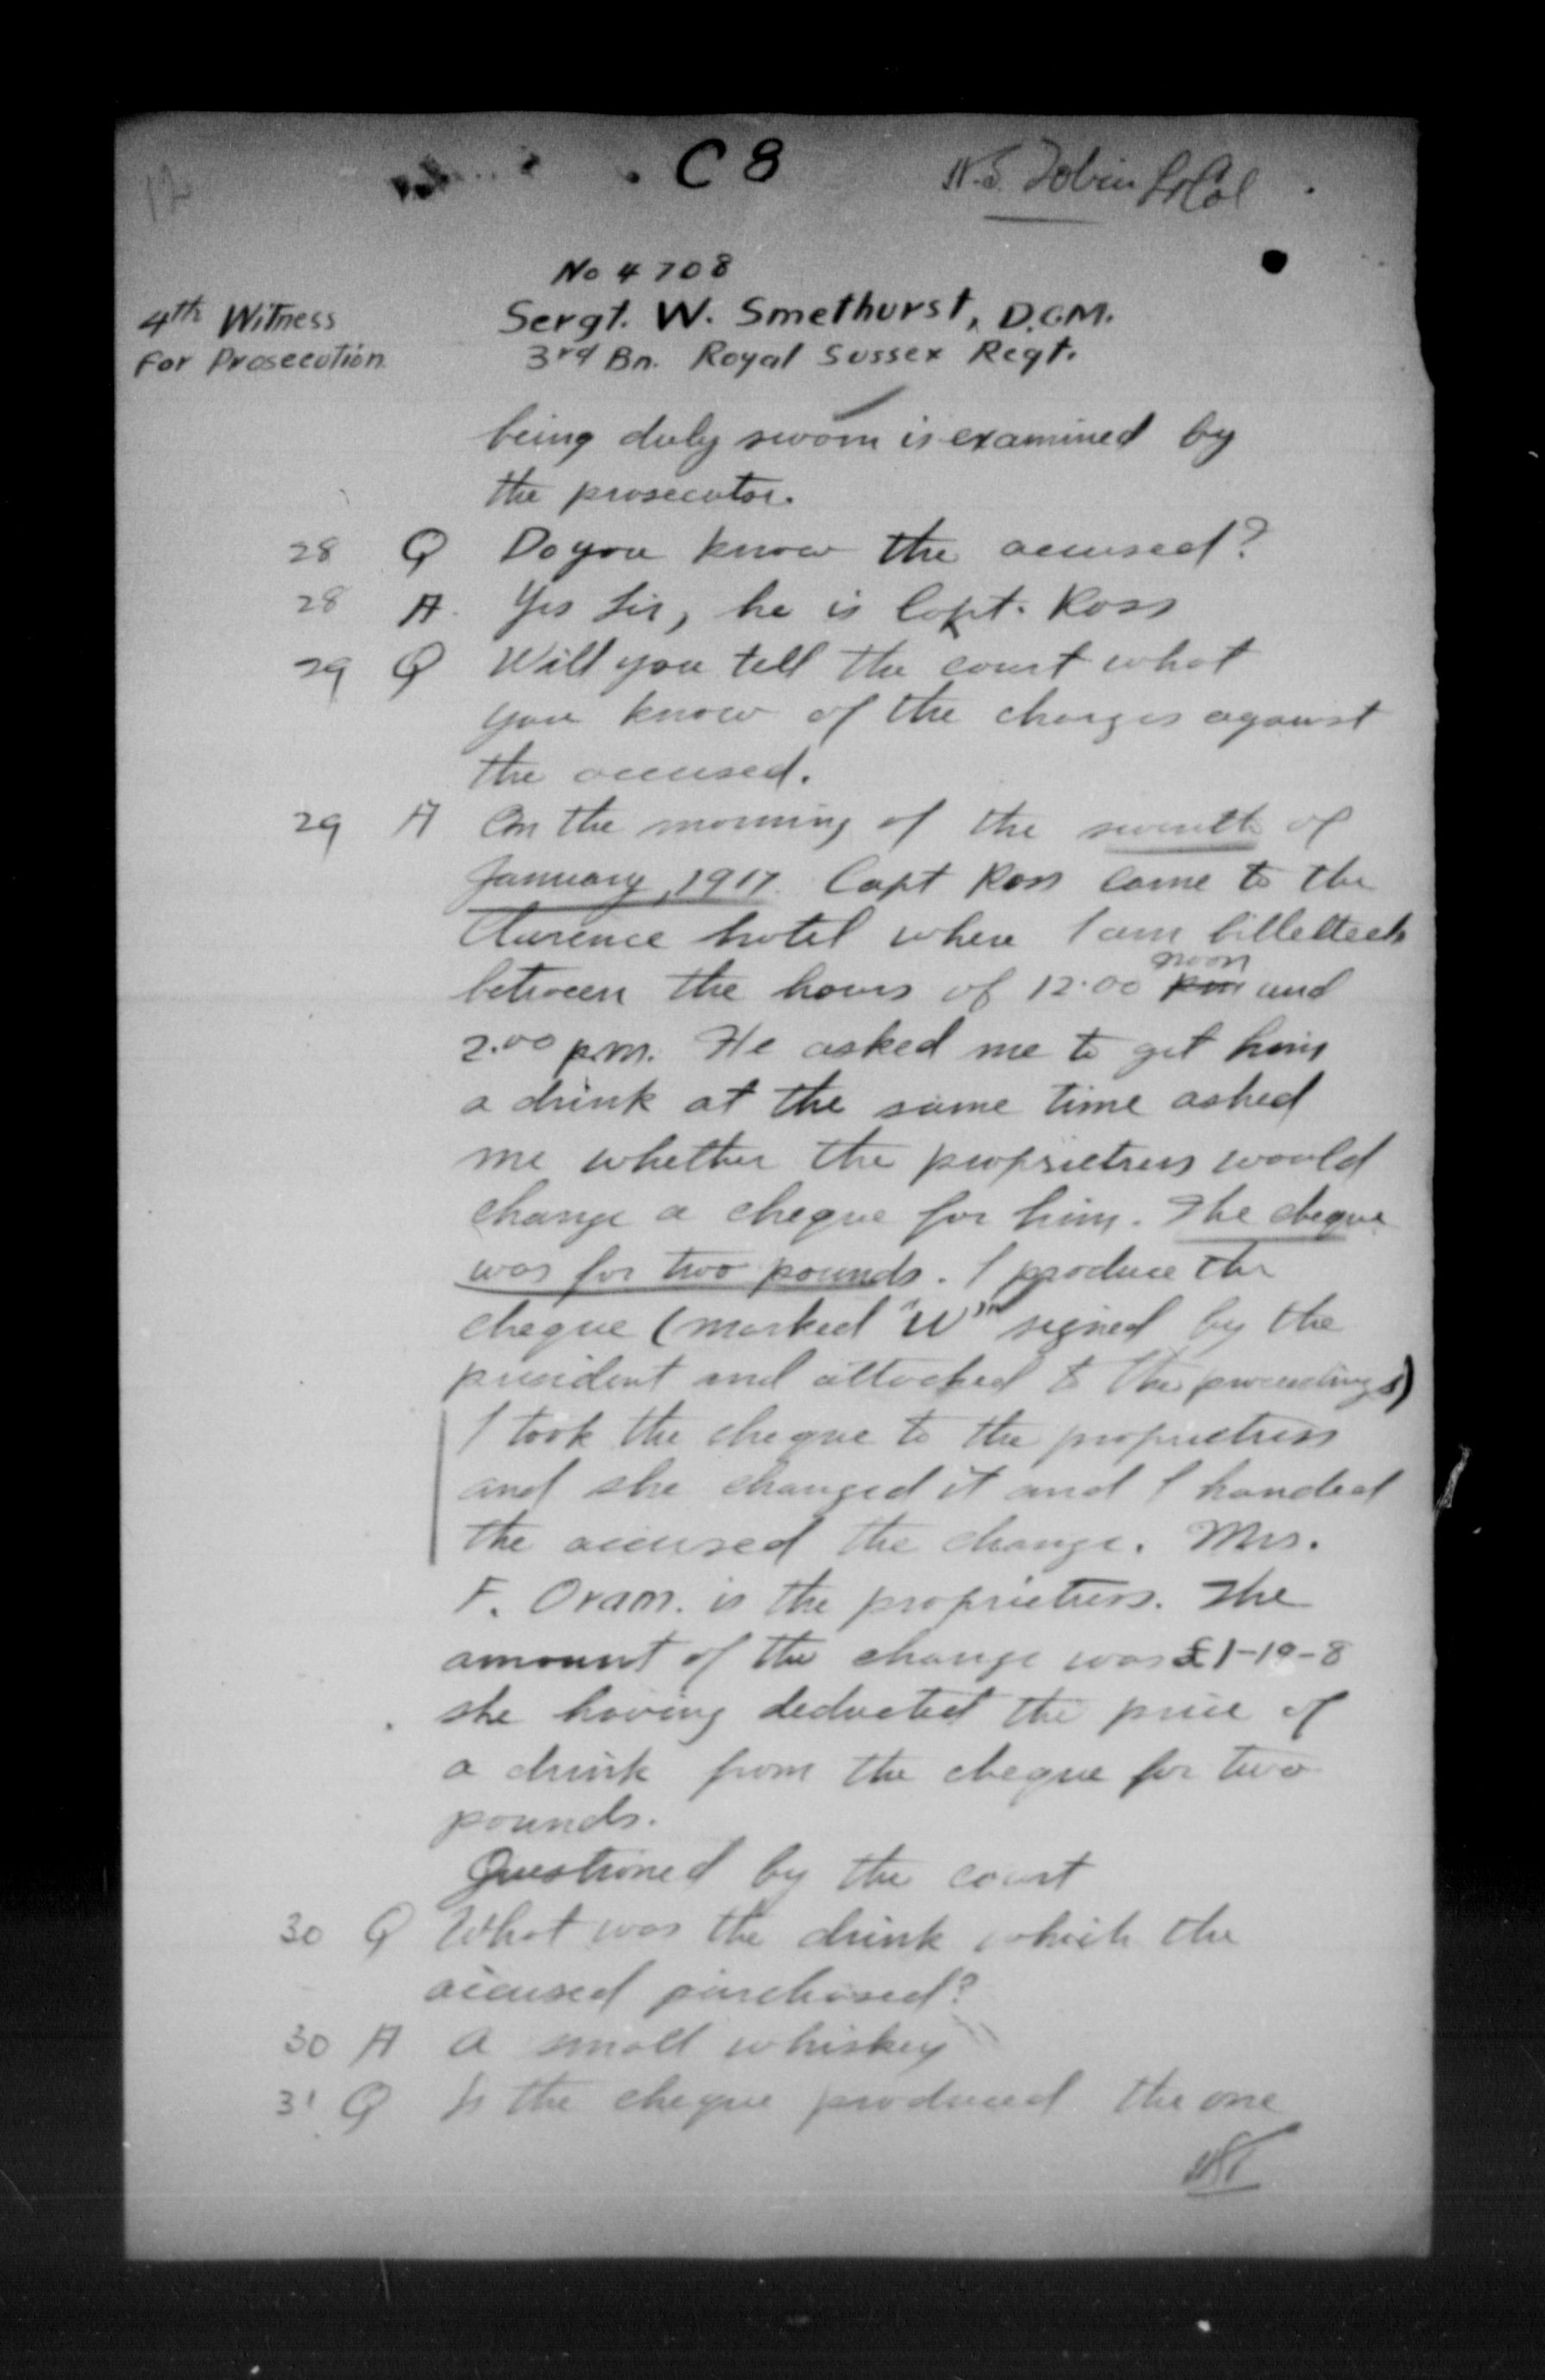 12
C 8
H.S. Tobin Lt Col
No 4708
4th Witness Sergt. W. Smethurst, D.C.M.
For Prosecution 3rd Bn. Royal Sussex Regt.
being duly sworn is examined by
the prosecutor.
28 Q Do you know the accused?
28 A. Yes Sir, he is Capt. Ross
29 Q Will you tell the court what
you know of the charges against
the accused.
29 A On the morning of the seventh of
January, 1917. Capt Ross came to the
Clarence hotel where I am billetted
noon
between the hours of 12.00 pm and
2.00 p.m. He asked me to get him
a drink at the same time asked
me whether the proprietress would
change a cheque for him. The cheque
was for two pounds. I produce the
cheque (marked "W" signed by the
president and attached to the proceedings)
I took the cheque to the proprietress
and she changed it and I handed
the accused the change. Mrs.
F. Oram. is the proprietress. The
amount of the change was £1-19-8
she having deducted the price of
a drink from the cheque for two
pounds.
Questioned by the court
30 Q What was the drink which the
accused purchased?
30 A A small whiskey
31 Q Is the cheque produced the one
HST